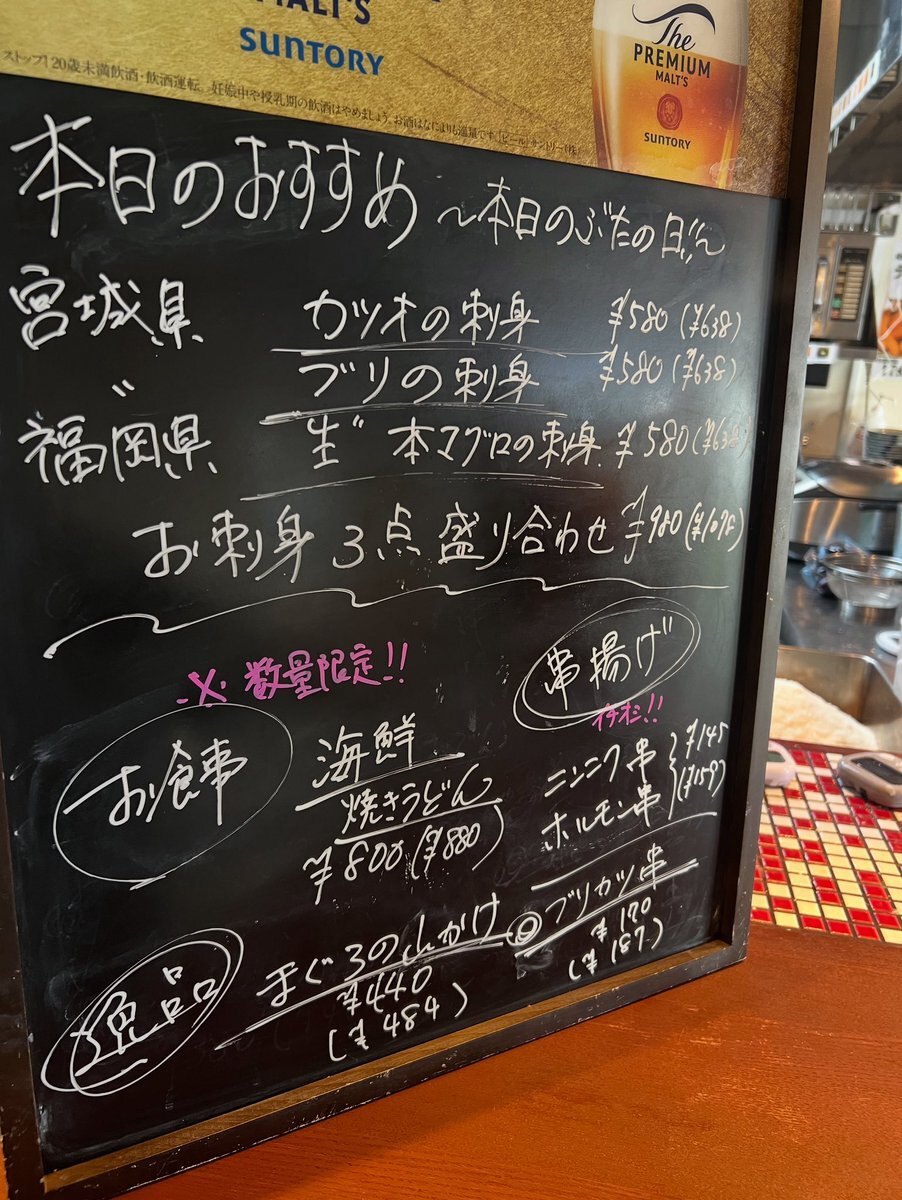 MALT'S
SUNTORY
The
PREMIUM
MALT'S
SUNTORY
ストップ!20歳未満飲酒・飲酒運転。妊娠中や授乳期の飲酒はやめましょう。お酒はなによりも適量です。「ビール」サントリー(株)
本日のおすすめ 〜本日のぶたの日!!〜
宮城県 カツオの刺身 ¥580(¥638)
〃 ブリの刺身 ¥580(¥638)
福岡県 生〃本マグロの刺身 ¥580(¥638
お刺身3点盛り合わせ ¥980(¥1078)
※数量限定!!
お食事
海鮮
焼きうどん
¥800(¥880)
串揚げ
イチオシ!!
ニンニク串
ホルモン串
¥145
(¥159)
◎ブリカツ串
¥170
(¥187)
逸品
まぐろのんかけ
¥440
(¥484)